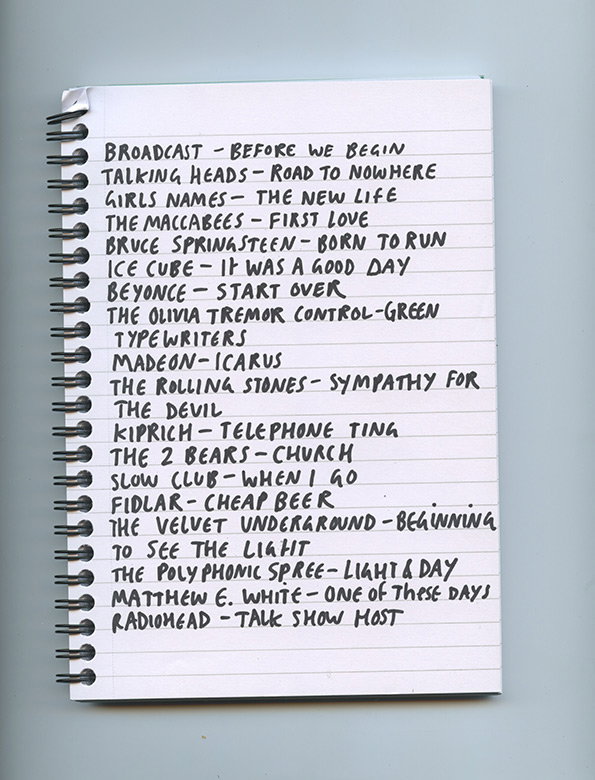 BROADCAST - BEFORE WE BEGIN
TALKING HEADS - ROAD TO NOWHERE
GIRLS NAMES - THE NEW LIFE
THE MACCABEES - FIRST LOVE
BRUCE SPRINGSTEEN - BORN TO RUN
ICE CUBE - It WAS A GOOD DAY
BEYONCE - START OVER
THE OLIVIA TREMOR CONTROL - GREEN
TYPEWRITERS
MADEON - ICARUS
THE ROLLING STONES - SYMPATHY FOR
THE DEVIL
KIPRICH - TELEPHONE TING
THE 2 BEARS - CHURCH
SLOW CLUB - WHEN I GO
FIDLAR - CHEAP BEER
THE VELVET UNDERGROUND - BEGINNING
TO SEE THE LIGHT
THE POLYPHONIC SPREE - LIGHT & DAY
MATTHEW E. WHITE - ONE OF THESE DAYS
RADIOHEAD - TALK SHOW HOST